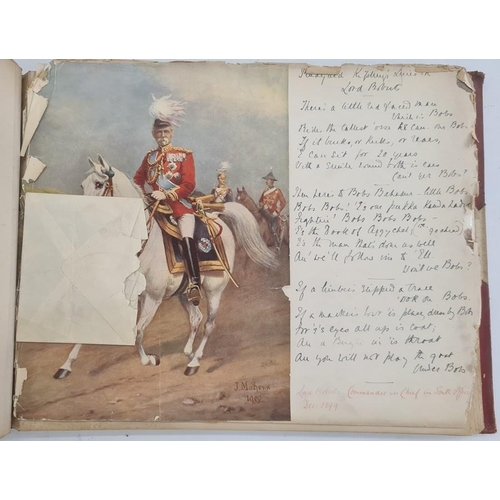 Rudyard Kipling's Lines on
Lord Roberts
There's a little red faced man
Which is Bobs
Rides the tallest 'orse he can our Bobs
If it bucks, or kicks, or rears,
'E can sit for 20 years
With a smile round both is ears
Can't yer Bobs?
Then 'ere's to Bobs Bahadur - little Bobs
Bobs Bobs! 'E's our pukka Kandahader
Fightin' Bobs Bobs Bobs -
'E's the Dook of Aggychel
'E's the man that's done us well
An' we'll follow im to 'Ell
Won't we Bobs?
If a limber's slipped a trace
'ook on Bobs.
If a marker's lost is place, dress by Bobs
For 'e's eyes all up is coat,
An a Bugle in is throat
An you will not play the goat
Under Bobs
Commander in Chief in South
Dec 1899
1901